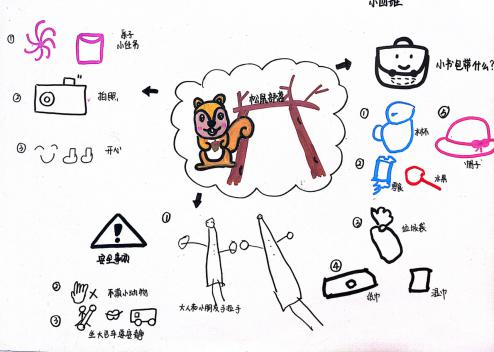 小画推
松鼠部落
① 亲子
小任务
② 拍照
③ 开心
小书包带什么？
① 水杯
⑤ 帽子
② 零食
水果
③ 垃圾袋
④ 纸巾
湿巾
安全事项
①
大人和小朋友手拉手
② 不摸小动物
③
坐大巴车要安静